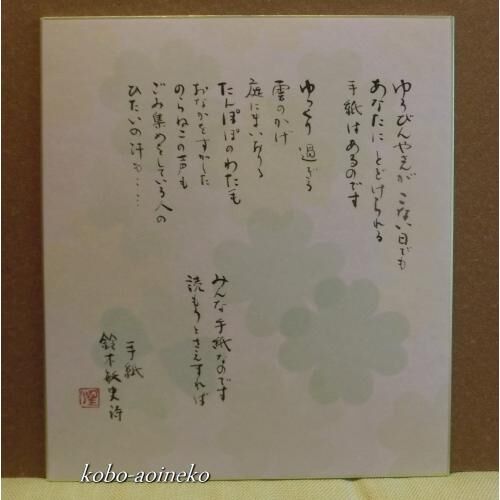 ゆうびんやさんが こない日でも
あなたに とどけられる
手紙はあるのです
ゆっくり 過ぎる
雲のかげ
庭にまいおりる
たんぽぽのわた毛
おなかをすかした
のらねこの声も
ごみ集めをしている人の
ひたいの汗も……
みんな手紙なのです
読もうとさえすれば
手紙
鈴木敏史 詩
kobo-aoineko